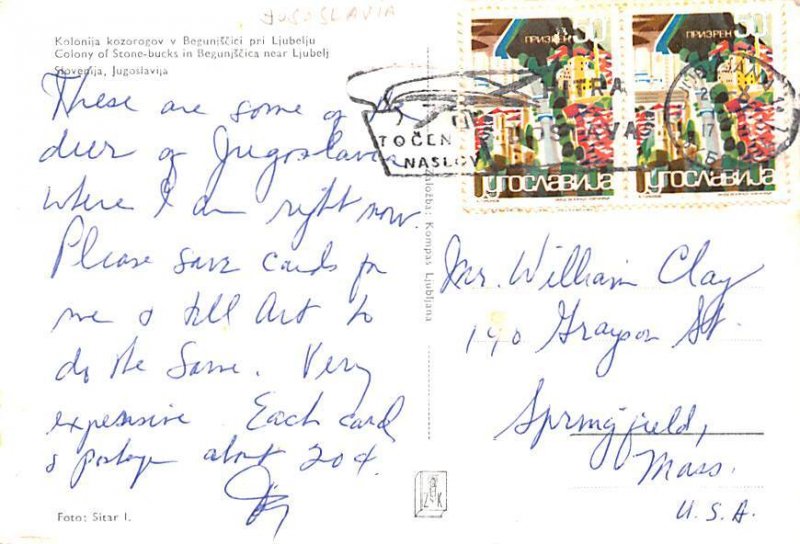 JUGOSLAVIA
Kolonija kozorogov v Begunjščici pri Ljubelju
Colony of Stone-bucks in Begunjščica near Ljubelj
Slovenija, Jugoslavija
These are some of
deer of Jugoslavia
where I am right now.
Please save cards for
me & tell Art to
do the same. Very
expensive. Each card
& postage about 20¢.
Foto: Sitar I.
Založba: Kompas Ljubljana
ПРИЗРЕН 50
ПРИЗРЕН 50
Југославија
Југославија
HITRA
TOČEN
NASLOV
Mr. William Clay
190 Grayson St.
Springfield,
Mass.
U.S.A.